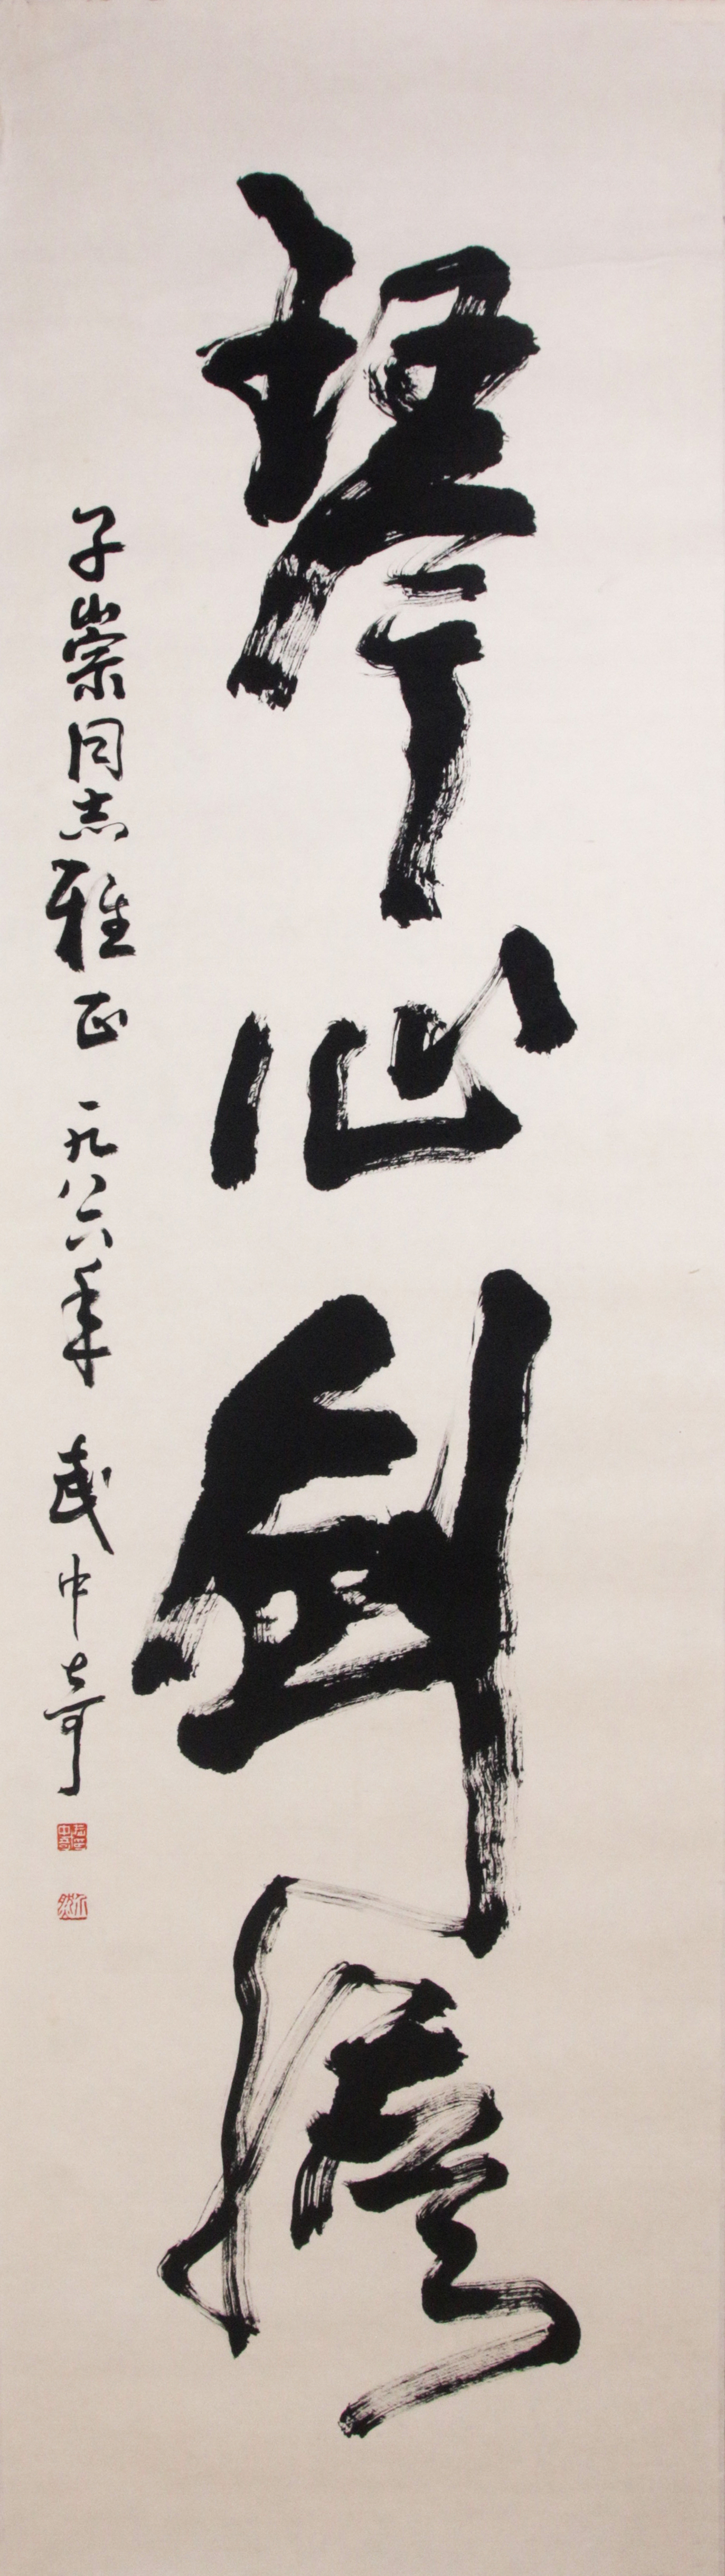 琴心剑胆
子崇同志雅正 一九八六年 武中奇